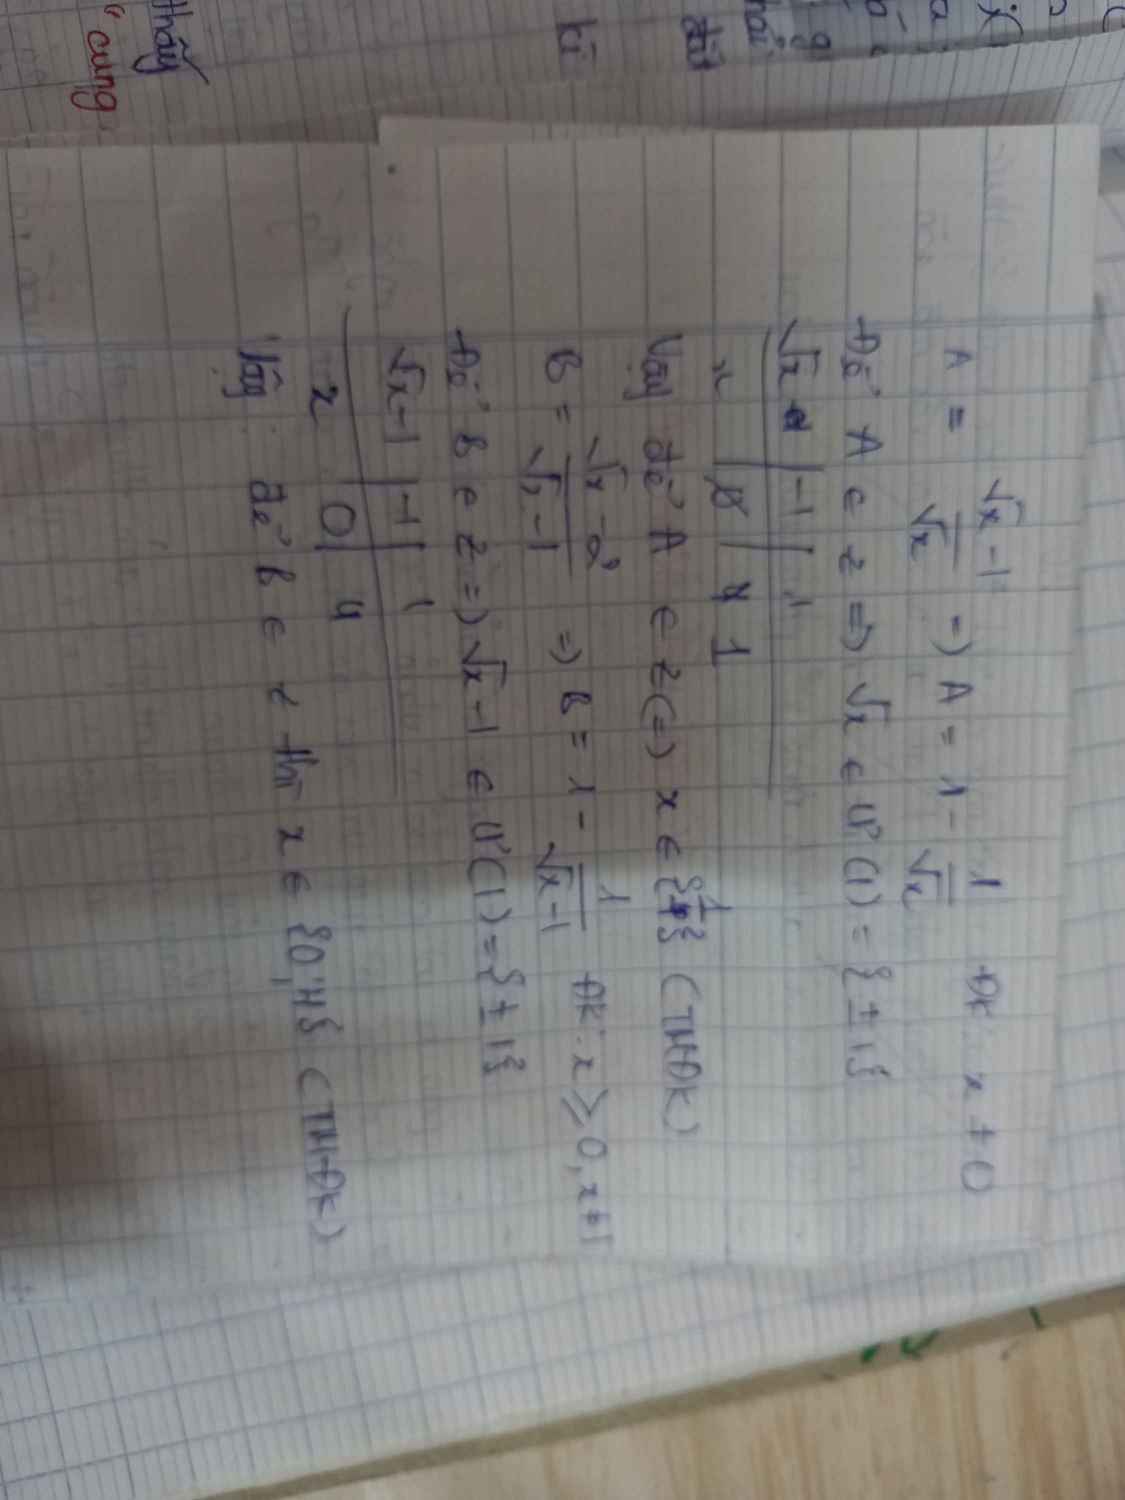 A = √x-1 / √x => A = 1 - 1/√x ĐK x ≠ 0
Để A ∈ Z => √x ∈ Ư(1) = {±1}
√x | -1 | 1
x | | 1
Vậy để A ∈ Z <=> x ∈ {1} (TMĐK)
B = √x-2 / √x-1 => B = 1 - 1/√x-1 ĐK: x ≥ 0, x ≠ 1
Để B ∈ Z => √x-1 ∈ Ư(1) = {±1}
√x-1 | -1 | 1
x | 0 | 4
Vậy để B ∈ Z thì x ∈ {0;4} (TMĐK)
thấy
"cung
kì